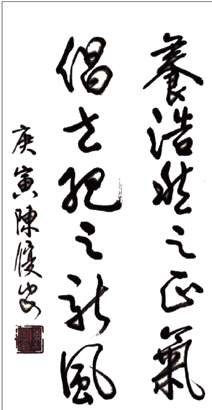 養浩然之正氣
倡世紀之新風
庚寅陳履安